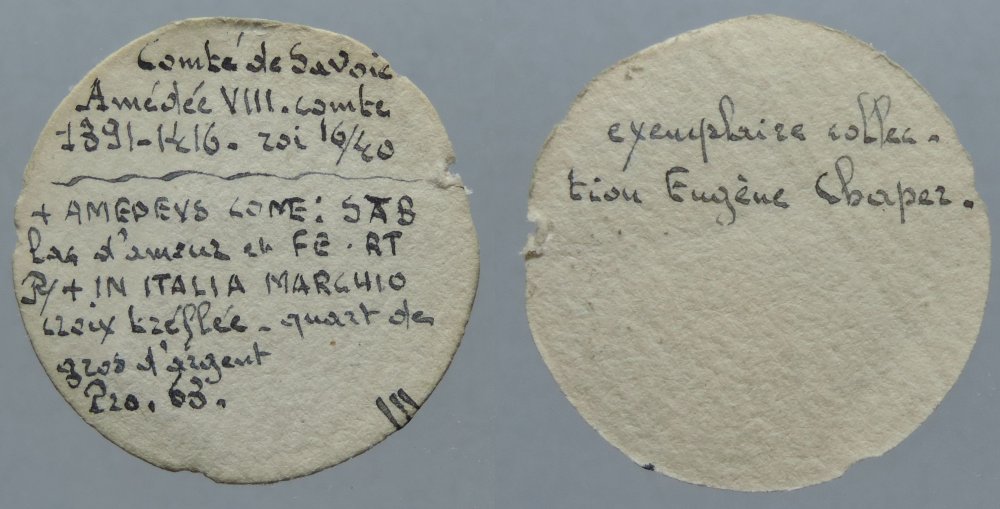 Comté de Savoie
Amédée VIII. comte
1391-1416. roi 16/40
+ AMEDEVS COME: SAB
lac d'amour et FE. RT
R/ + IN ITALIA MARCHIO
croix tréflée - quart de
gros d'argent
Pro. 63.
III
exemplaire collec-
tion Eugène Chaper.